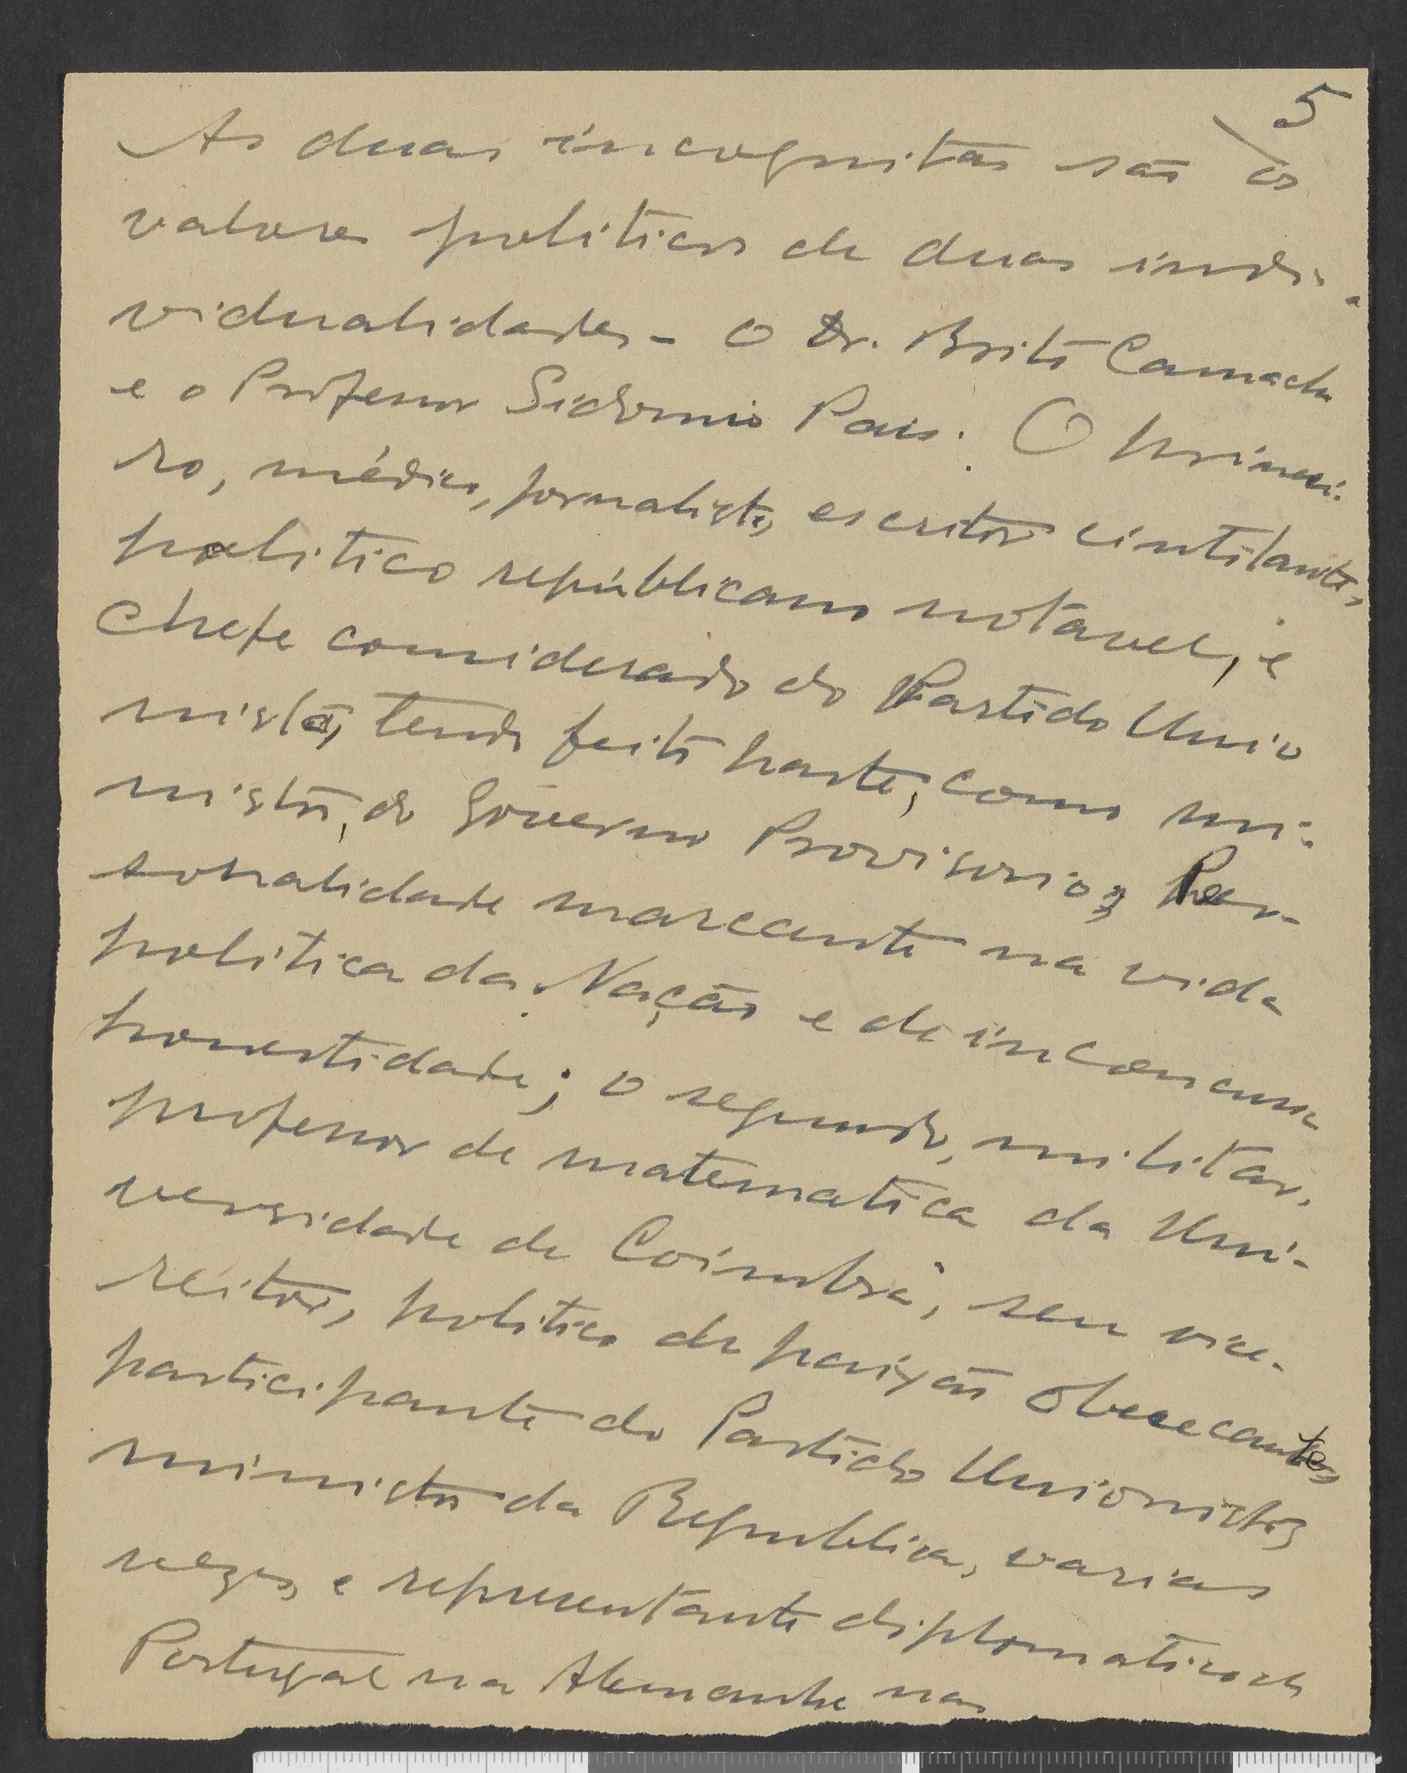 5
As duas incognitas são os
valores politicos de duas indi-
vidualidades - O Dr. Brito Camacho
e o Professor Sidonio Pais. O primei-
ro, médico, jornalista, escritor cintilante,
politico repúblicano notavel, é
chefe considerado do Partido Unio
nista, tendo feito parte, como mi-
nistro, do Govêrno Provisorio, per-
sonalidade marcante na vida
politica da Nação e de inconcussa
honestidade; o segundo, militar,
professor de matematica da Uni-
versidade de Coimbra, seu vice-
reitor, politico de paixão obcecante,
participante do Partido Unionista,
ministro da Republica, varias
vezes, e representante diplomatico de
Portugal na Alemanha nas